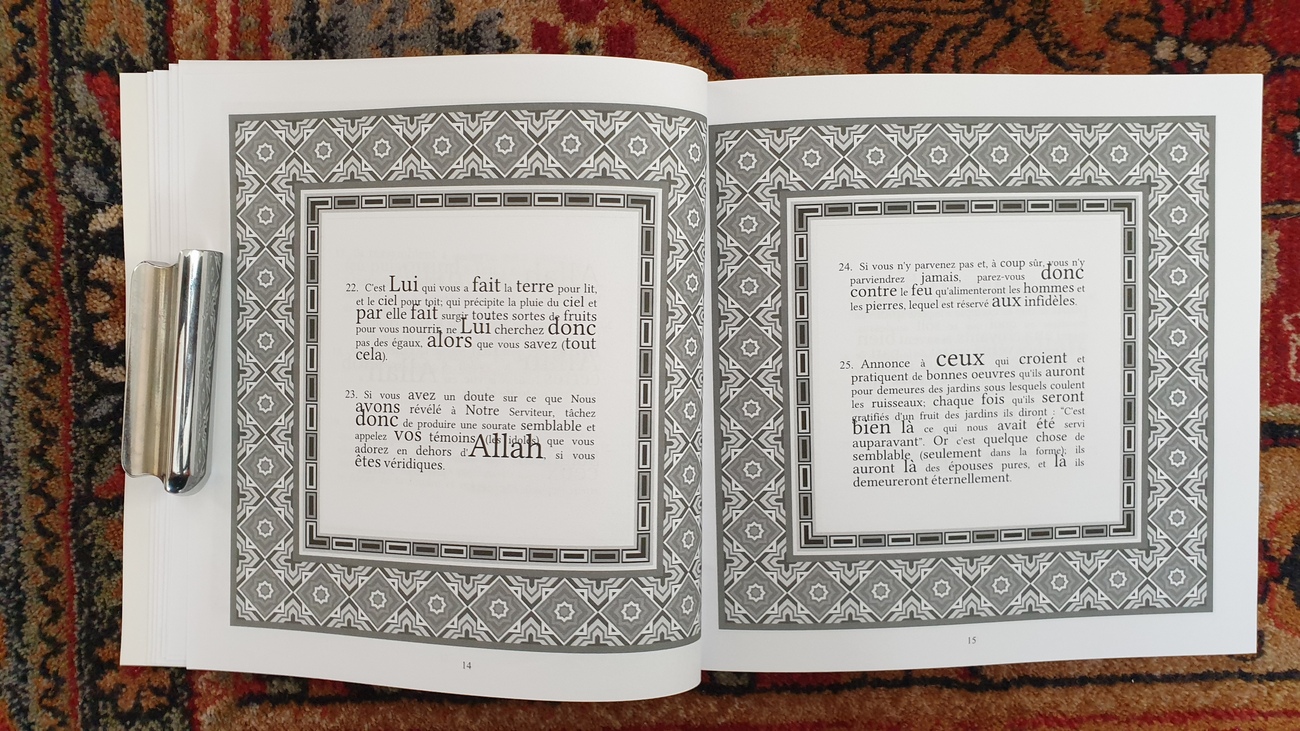 22. C'est Lui qui vous a fait la terre pour lit,
et le ciel pour toit; qui précipite la pluie du ciel et
par elle fait surgir toutes sortes de fruits
pour vous nourrir, ne Lui cherchez donc
pas des égaux, alors que vous savez (tout
cela).
23. Si vous avez un doute sur ce que Nous
avons révélé à Notre Serviteur, tâchez
donc de produire une sourate semblable et
appelez vos témoins, (les idoles) que vous
adorez en dehors d'Allah, si vous
êtes véridiques.
14
24. Si vous n'y parvenez pas et, à coup sûr, vous n'y
parviendrez jamais, parez-vous donc
contre le feu qu'alimenteront les hommes et
les pierres, lequel est réservé aux infidèles.
25. Annonce à ceux qui croient et
pratiquent de bonnes oeuvres qu'ils auront
pour demeures des jardins sous lesquels coulent
les ruisseaux; chaque fois qu'ils seront
gratifiés d'un fruit des jardins ils diront : "C'est
bien là ce qui nous avait été servi
auparavant". Or c'est quelque chose de
semblable (seulement dans la forme); ils
auront là des épouses pures, et là ils
demeureront éternellement.
15